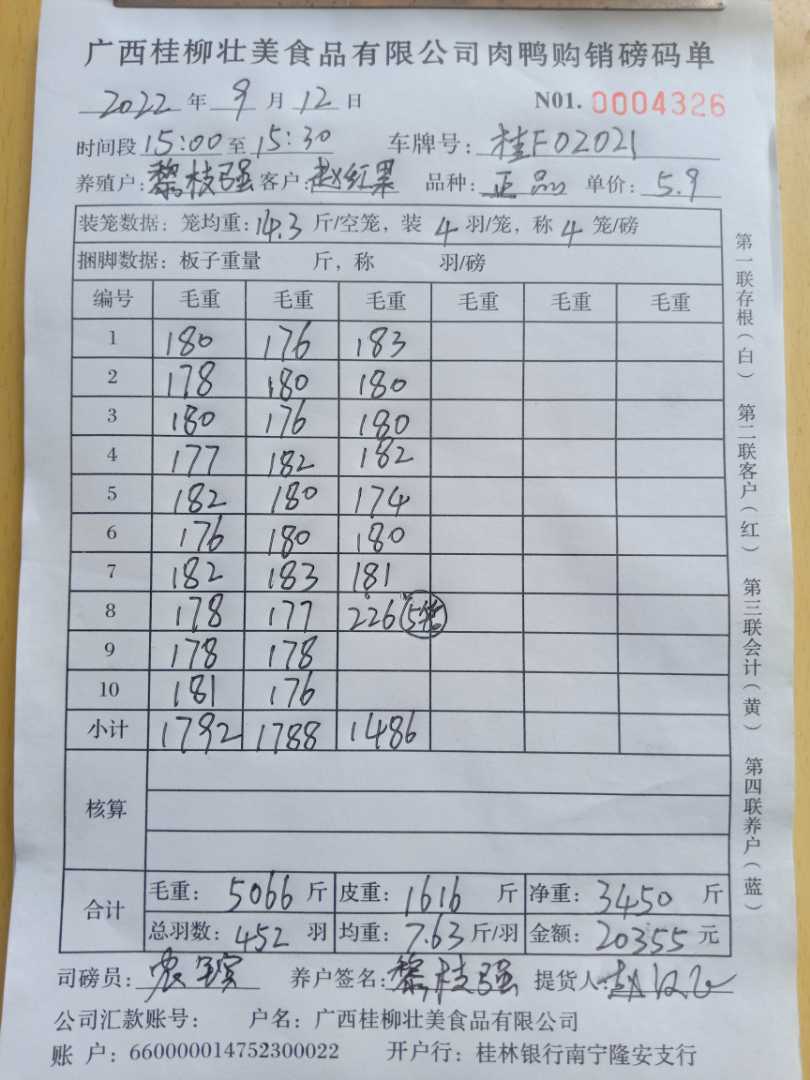 广西桂柳壮美食品有限公司肉鸭购销磅码单
2022 年 9 月 12 日 N01. 0004326
时间段 15:00 至 15:30 车牌号: 桂F02021
养殖户: 黎枝强 客户: 赵红果 品种: 正品 单价: 5.9
装笼数据: 笼均重: 14.3 斤/空笼, 装 4 羽/笼, 称 4 笼/磅
捆脚数据: 板子重量 斤, 称 羽/磅
编号 毛重 毛重 毛重 毛重 毛重 毛重
1 180 176 183
2 178 180 180
3 180 176 180
4 177 182 182
5 182 180 174
6 176 180 180
7 182 183 181
8 178 177 226 5笼
9 178 178
10 181 176
小计 1792 1788 1486
核算
合计 毛重: 5066 斤 皮重: 1616 斤 净重: 3450 斤
总羽数: 452 羽 均重: 7.63 斤/羽 金额: 20355 元
司磅员: 养户签名: 黎枝强 提货人:
公司汇款账号: 户名: 广西桂柳壮美食品有限公司
账 户: 660000014752300022 开户行: 桂林银行南宁隆安支行
第一联存根(白) 第二联客户(红) 第三联会计(黄) 第四联养户(蓝)